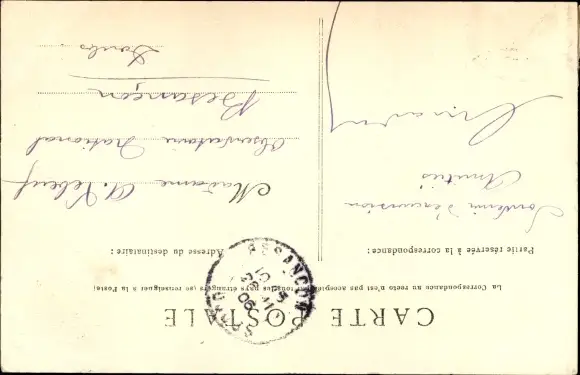 CARTE POSTALE
La Correspondance au recto n'est pas acceptée par tous les pays étrangers (se renseigner à la Poste)
Partie réservée à la correspondance :
Souvenir d'excursion
Amitiés
Adresse du destinataire :
Madame A. Lebeuf
Observatoire National
Besançon
Doubs
BESANÇON
DOUBS